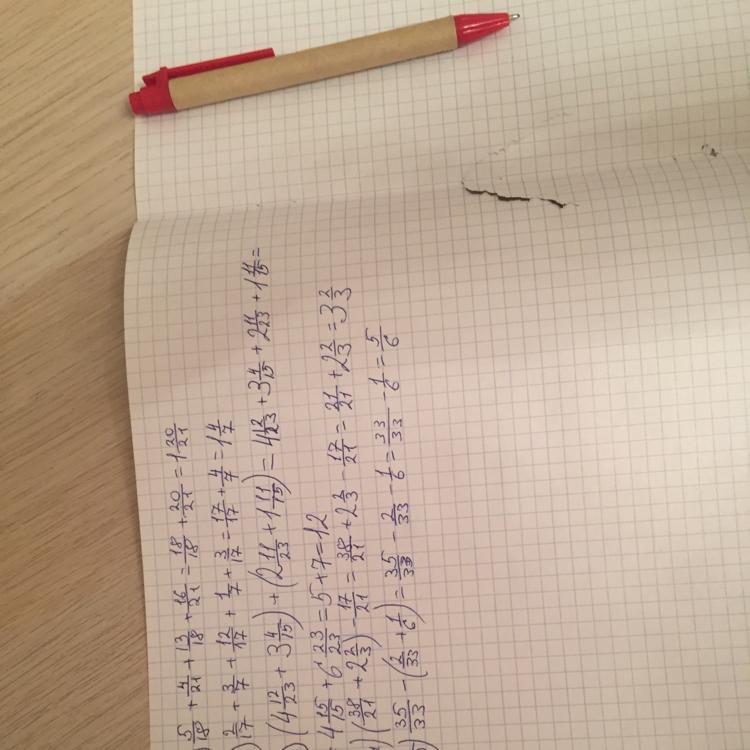 ) 5/18 + 4/21 + 13/18 + 16/21 = 18/18 + 20/21 = 1 20/21
) 2/17 + 3/7 + 12/17 + 1/7 + 3/17 = 17/17 + 4/7 = 1 4/7
) (4 12/23 + 3 4/15) + (2 11/23 + 1 11/15) = 4 12/23 + 3 4/15 + 2 11/23 + 1 11/15 =
4 15/15 + 6 23/23 = 5 + 7 = 12
) (38/21 + 2 2/3) - 17/21 = 38/21 + 2 2/3 - 17/21 = 21/21 + 2 2/3 = 3 2/3
) 35/33 - (2/33 + 1/6) = 35/33 - 2/33 - 1/6 = 33/33 - 1/6 = 5/6